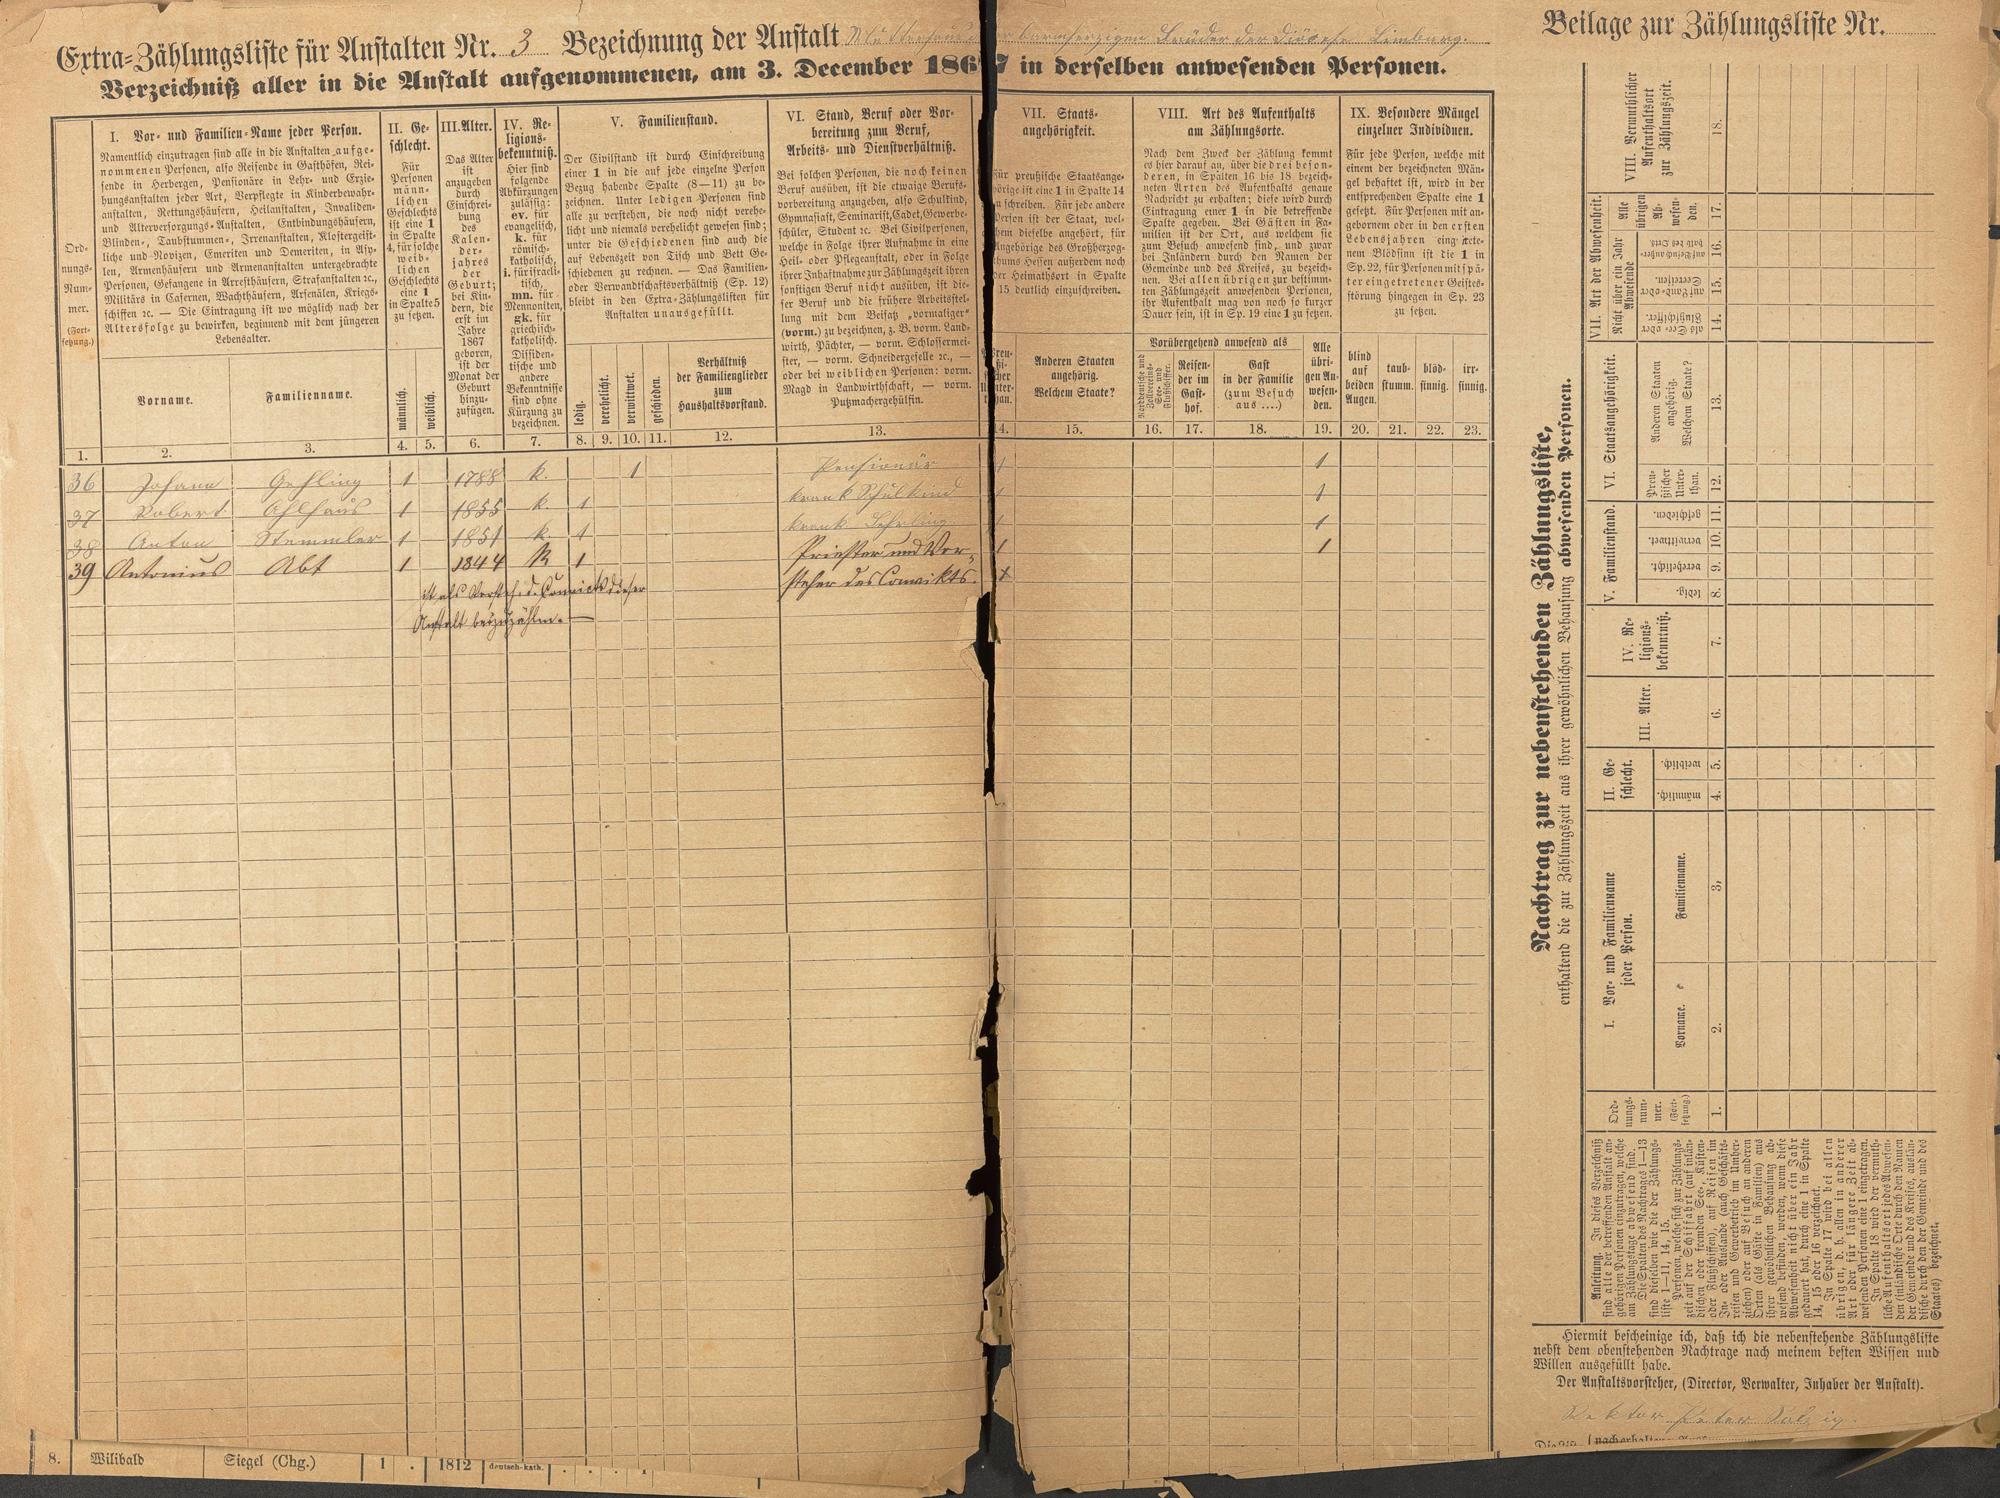 Extra-Zählungsliste für Anstalten Nr. 3 Bezeichnung der Anstalt Mutterhaus der barmherzigen Brüder der Diözese Limburg.
Verzeichniß aller in die Anstalt aufgenommenen, am 3. December 1867 in derselben anwesenden Personen.
Ord-
nungs-
Num-
mer.
(Fort-
setzung.)
I. Vor- und Familien-Name jeder Person.
Namentlich einzutragen sind alle in die Anstalten aufge-
nommenen Personen, also Reisende in Gasthöfen, Rei-
sende in Herbergen, Pensionäre in Lehr- und Erzie-
hungsanstalten jeder Art, Verpflegte in Kinderbewahr-
anstalten, Rettungshäusern, Heilanstalten, Invaliden-
und Altersversorgungs-Anstalten, Entbindungshäusern,
Blinden-, Taubstummen-, Irrenanstalten, Klostergeist-
liche und -Novizen, Emeriten und Demeriten, in Asy-
len, Armenhäusern und Armenanstalten untergebrachte
Personen, Gefangene in Arresthäusern, Strafanstalten ꝛc.,
Militärs in Casernen, Wachthäusern, Arsenälen, Kriegs-
schiffen ꝛc. — Die Eintragung ist wo möglich nach der
Altersfolge zu bewirken, beginnend mit dem jüngeren
Lebensalter.
Vorname.
Familienname.
II. Ge-
schlecht.
Für
Personen
männ-
lichen
Geschlechts
ist eine 1
in Spalte
4, für solche
weib-
lichen
Geschlechts
eine 1
in Spalte 5
zu setzen.
männlich.
weiblich.
III. Alter.
Das Alter
ist
anzugeben
durch
Einschrei-
bung
des
Kalen-
der-
jahres
der
Geburt;
bei Kin-
dern, die
erst im
Jahre
1867
geboren,
ist der
Monat der
Geburt
hinzu-
zufügen.
IV. Re-
ligions-
bekenntniß.
Hier sind
folgende
Abkürzungen
zulässig:
ev. für
evangelisch,
k. für
römisch-
katholisch,
i. für israeli-
tisch,
mn. für
Mennoniten,
gk. für
griechisch-
katholisch.
Dissiden-
tische und
andere
Bekenntnisse
sind ohne
Kürzung zu
bezeichnen.
V. Familienstand.
Der Civilstand ist durch Einschreibung
einer 1 in die auf jede einzelne Person
Bezug habende Spalte (8—11) zu be-
zeichnen. Unter ledigen Personen sind
alle zu verstehen, die noch nicht verehe-
licht und niemals verehelicht gewesen sind;
unter die Geschiedenen sind auch die
auf Lebenszeit von Tisch und Bett Ge-
schiedenen zu rechnen. — Das Familien-
oder Verwandtschaftsverhältniß (Sp. 12)
bleibt in den Extra-Zählungslisten für
Anstalten unausgefüllt.
ledig.
verehelicht.
verwittwet.
geschieden.
Verhältniß
der Familienglieder
zum
Haushaltsvorstand.
VI. Stand, Beruf oder Vor-
bereitung zum Beruf,
Arbeits- und Dienstverhältniß.
Bei solchen Personen, die noch keinen
Beruf ausüben, ist die etwaige Berufs-
vorbereitung anzugeben, also Schulkind,
Gymnasiast, Seminarist, Cadet, Gewerbe-
schüler, Student ꝛc. Bei Civilpersonen,
welche in Folge ihrer Aufnahme in eine
Heil- oder Pflegeanstalt, oder in Folge
ihrer Inhaftnahme zur Zählungszeit ihren
sonstigen Beruf nicht ausüben, ist die-
ser Beruf und die frühere Arbeitsstel-
lung mit dem Beisatz „vormaliger"
(vorm.) zu bezeichnen, z. B. vorm. Land-
wirth, Pächter, — vorm. Schlossermei-
ster, — vorm. Schneidergeselle ꝛc., —
oder bei weiblichen Personen: vorm.
Magd in Landwirthschaft, — vorm.
Putzmachergehülfin.
VII. Staats-
angehörigkeit.
Für preußische Staatsange-
hörige ist eine 1 in Spalte 14
zu schreiben. Für jede andere
Person ist der Staat, wel-
chem dieselbe angehört, für
Angehörige des Großherzog-
thums Hessen außerdem noch
der Heimathsort in Spalte
15 deutlich einzuschreiben.
Anderen Staaten
angehörig.
Welchem Staate?
VIII. Art des Aufenthalts
am Zählungsorte.
Nach dem Zweck der Zählung kommt
es hier darauf an, über die drei beson-
deren, in Spalten 16 bis 18 bezeich-
neten Arten des Aufenthalts genaue
Nachricht zu erhalten; diese wird durch
Eintragung einer 1 in die betreffende
Spalte gegeben. Bei Gästen in Fa-
milien ist der Ort, aus welchem sie
zum Besuch anwesend sind, und zwar
bei Inländern durch den Namen der
Gemeinde und des Kreises, zu bezeich-
nen. Bei allen übrigen zur bestimm-
ten Zählungszeit anwesenden Personen,
ihr Aufenthalt mag von noch so kurzer
Dauer sein, ist in Sp. 19 eine 1 zu setzen.
Vorübergehend anwesend als
Norddeutsche und
Zollvereins-
See- und
Flußschiffer.
Reisen-
der im
Gast-
hof.
Gast
in der Familie
(zum Besuch
aus ....)
Alle
übri-
gen An-
wesen-
den.
IX. Besondere Mängel
einzelner Individuen.
Für jede Person, welche mit
einem der bezeichneten Män-
gel behaftet ist, wird in der
entsprechenden Spalte eine 1
gesetzt. Für Personen mit an-
gebornem oder in den ersten
Lebensjahren eingetrete-
nem Blödsinn ist die 1 in
Sp. 22, für Personen mit spä-
ter eingetretener Geistes-
störung hingegen in Sp. 23
zu setzen.
blind
auf
beiden
Augen.
taub-
stumm.
blöd-
sinnig.
irr-
sinnig.
1. 2. 3. 4. 5. 6. 7. 8. 9. 10. 11. 12. 13. 14. 15. 16. 17. 18. 19. 20. 21. 22. 23.
36 Johann Gehling 1 1788 k. 1 Pensionär 1 1
37 Robert Ohlhaus 1 1855 k. 1 krank Schulkind 1 1
38 Anton Stemmler 1 1851 k. 1 krank Lehrling 1 1
39 Antonius Abt 1 1844 k 1 Priester und Vor- 1 1
steher des Convikts. x
ist als Vorsteh. d. Convicts dieser
Anstalt beizuzählen. —
8. Wilibald Siegel (Chg.) 1 . 1812 deutsch-kath. . . . 1
Beilage zur Zählungsliste Nr.
Nachtrag zur nebenstehenden Zählungsliste,
enthaltend die zur Zählungszeit aus ihrer gewöhnlichen Behausung abwesenden Personen.
VIII. Vermuthlicher
Aufenthaltsort
zur Zählungszeit.
18.
VII. Art der Abwesenheit.
Nicht über ein Jahr
Abwesende
Alle
übrigen
Ab-
wesen-
den.
17.
16.
auf Land- oder
Seereisen.
15.
als See- oder
Flußschiffer.
14.
VI. Staatsangehörigkeit.
Anderen Staaten
angehörig.
Welchem Staate?
13.
Preu-
ßischer
Unter-
than.
12.
V. Familienstand.
geschieden.
11.
verwittwet.
10.
verehelicht.
9.
ledig.
8.
IV. Re-
ligions-
bekenntniß.
7.
III. Alter.
6.
II. Ge-
schlecht.
weiblich.
5.
männlich.
4.
I. Vor- und Familienname
jeder Person.
Familienname.
3.
Vorname.
2.
Ord-
nungs-
num-
mer.
(Fort-
setzung.)
1.
Anleitung. In dieses Verzeichniß
sind alle der betreffenden Anstalt an-
gehörigen Personen einzutragen, welche
am Zählungstage abwesend sind.
Die Spalten des Nachtrages 1—13
sind dieselben wie die der Zählungs-
liste 1—11, 14, 15.
Personen, welche sich zur Zählungs-
zeit auf der Schifffahrt (auf inlän-
dischen oder fremden See-, Küsten-
oder Flußschiffen), auf Reisen im
In- oder Auslande (auch Geschäfts-
reisen und Gewerbetrieb im Umher-
ziehen) oder auf Besuch an anderen
Orten (als Gäste in Familien) aus
ihrer gewöhnlichen Behausung ab-
wesend befinden, werden, wenn diese
Abwesenheit nicht über ein Jahr
gedauert hat, durch eine 1 in Spalte
14, 15 oder 16 verzeichnet.
In Spalte 17 wird bei allen
übrigen, d. h. allen in anderer
Art oder für längere Zeit ab-
wesenden Personen eine 1 eingetragen.
In Spalte 18 wird der vermuth-
liche Aufenthaltsort jedes Abwesen-
den (inländische Orte durch den Namen
der Gemeinde und des Kreises, auslän-
dische durch den der Gemeinde und des
Staates) bezeichnet.
Hiermit bescheinige ich, daß ich die nebenstehende Zählungsliste
nebst dem obenstehenden Nachtrage nach meinem besten Wissen und
Willen ausgefüllt habe.
Der Anstaltsvorsteher, (Director, Verwalter, Inhaber der Anstalt).
Rektor Peter